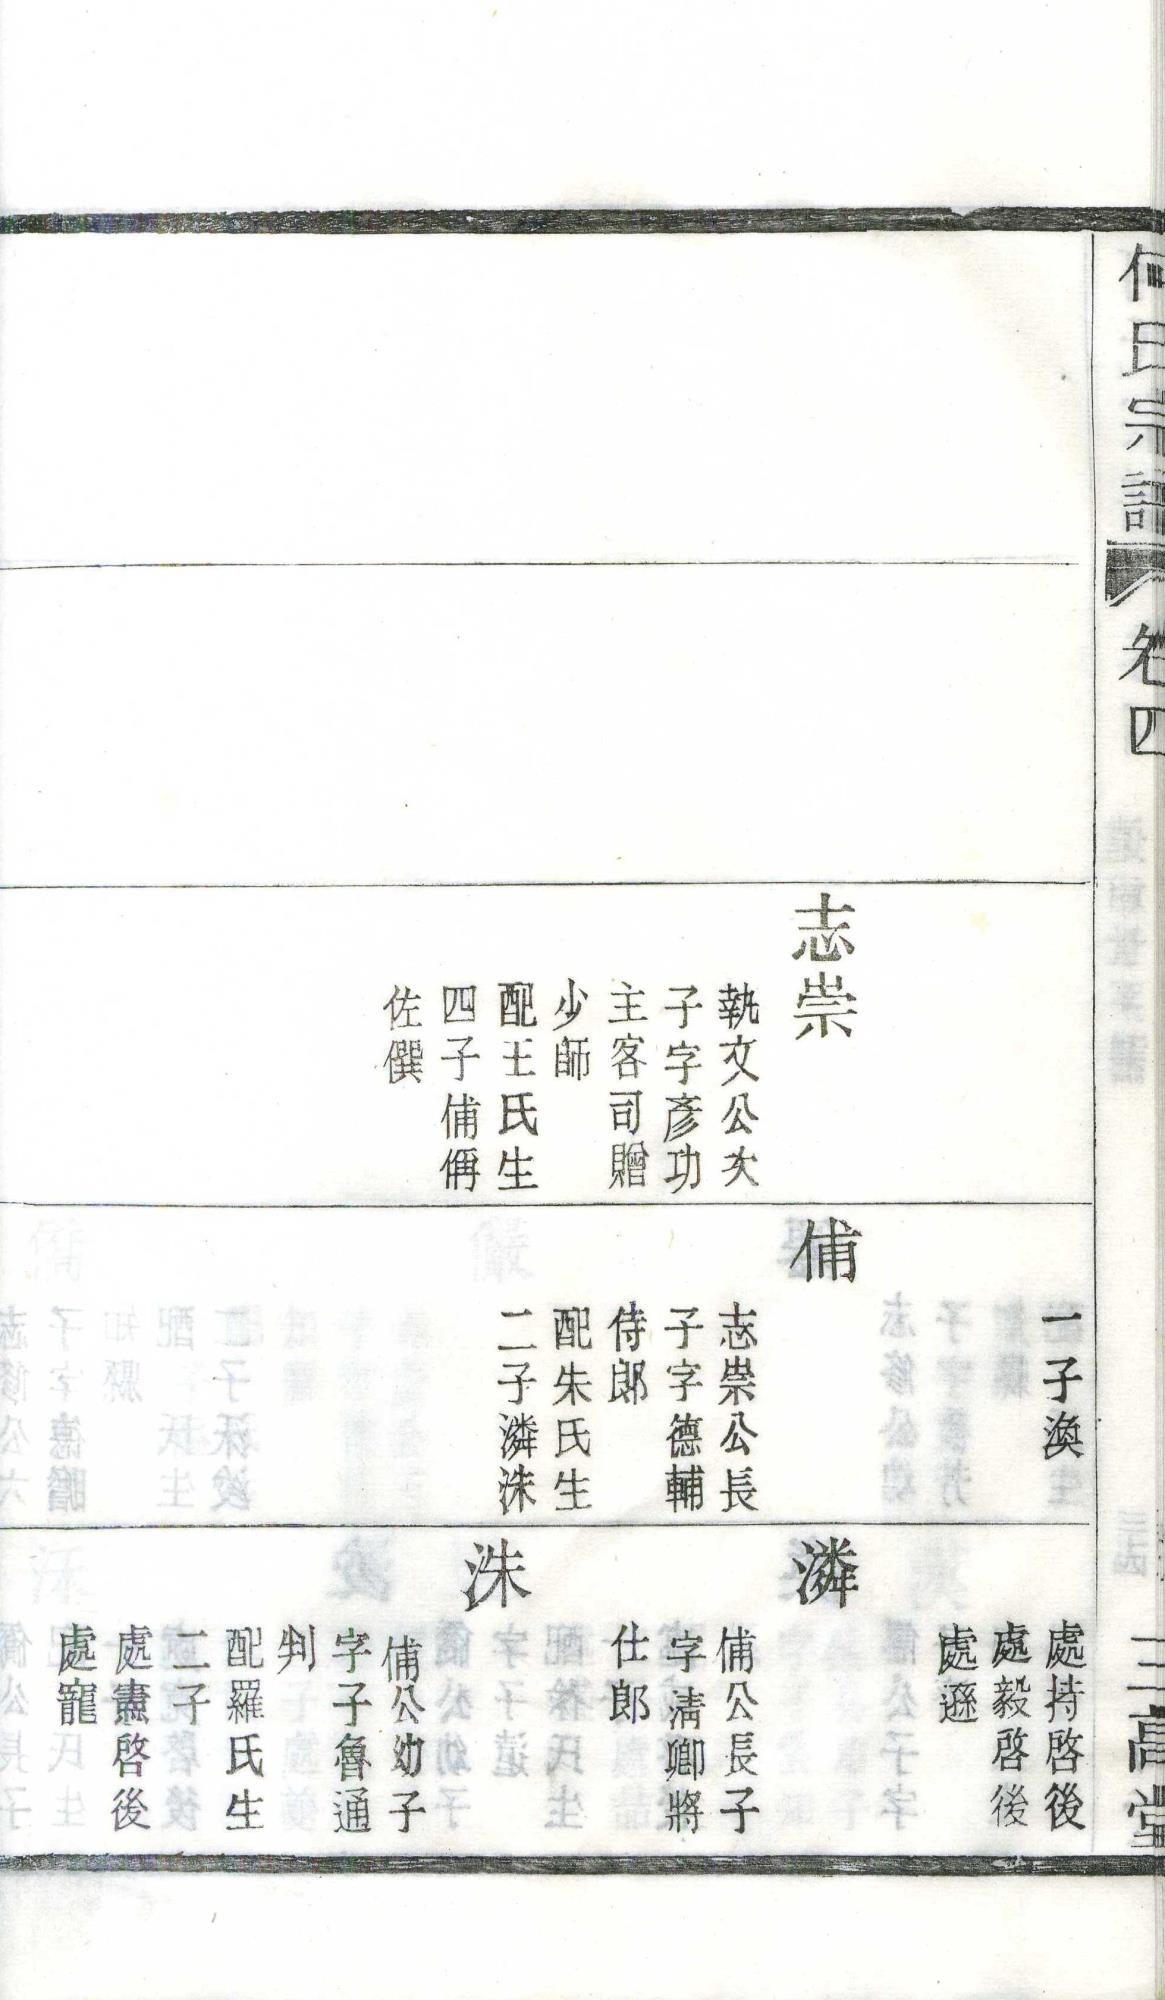 何氏宗譜
卷四
三高堂
志崇
執文公次
子字彥功
主客司贈
少師
配王氏生
四子俌偁
佐僎
一子渙
俌
志崇公長
子字德輔
侍郎
配朱氏生
二子潾洙
處持啓後
處毅啓後
處遜
潾
俌公長子
字淸卿將
仕郎
洙
俌公幼子
字子魯通
判
配羅氏生
二子
處憲啓後
處寵